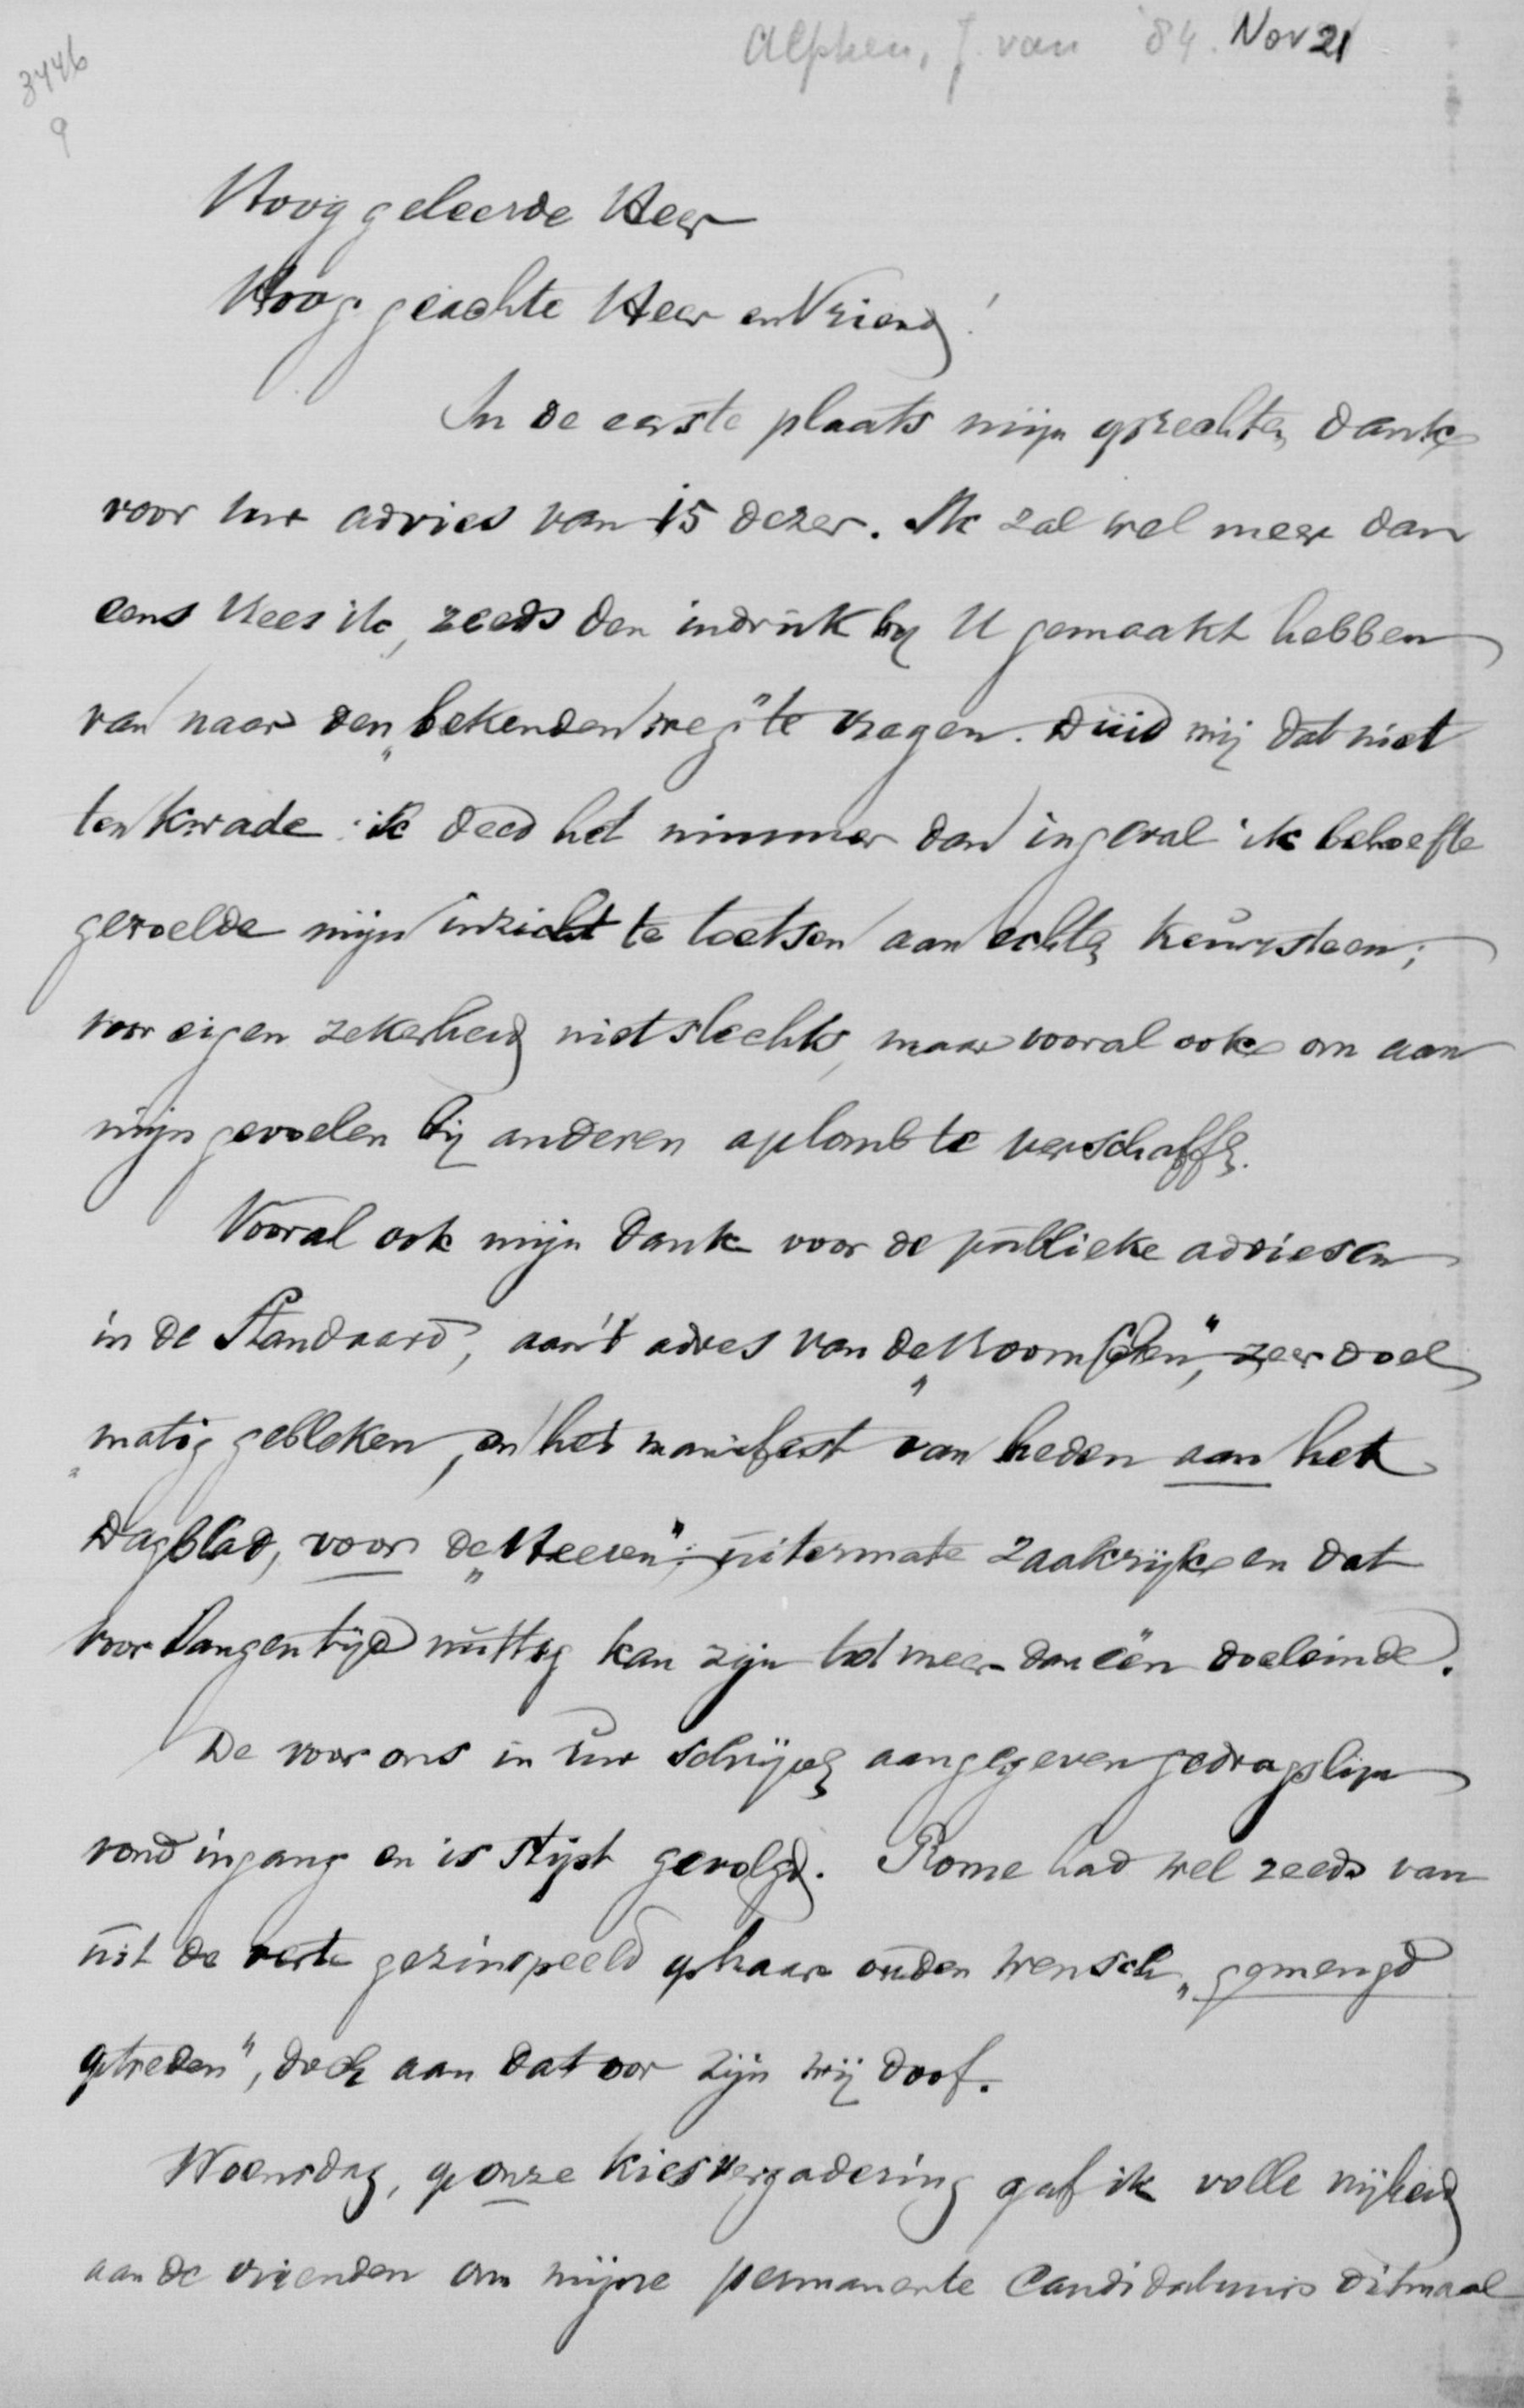 Alphen, J. van '84. Nov 21
3446
9
Hooggeleerde Heer
Hooggeachte Heer en Vriend!
In de eerste plaats mijn oprechten dank
voor uw advies van 15 dezer. Ik zal wel meer dan
eens vrees ik, reeds den indruk bij U gemaakt hebben
van naar den „bekenden weg" te vragen. Duid mij dat niet
ten kwade: ik deed het nimmer dan ingeval ik behoefte
gevoelde mijn inzicht te toetsen aan echten keursteen;
voor eigen zekerheid niet slechts, maar vooral ook om aan
mijn gevoelen bij anderen aplomb te verschaffen.
Vooral ook mijn dank voor de publieke adviesen
in de Standaard, aan 't adres van de „Roomschen", zeer doel
„matig gebleken, en het manifest van heden aan het
Dagblad, voor de „Heeren": uitermate zaakrijk en dat
voor langen tijd nuttig kan zijn tot meer dan één doeleinde.
De voor ons in uw schrijven aangegeven gedragslijn
vond ingang en is stipt gevolgd. Rome had wel reeds van
uit de verte gezinspeeld op haar ouden wensch „gemengd
optreden", doch aan dat oor zijn wij doof.
Woensdag, op onze kiesvergadering gaf ik volle vrijheid
aan de vrienden om mijne permanente Candidatuur ditmaal